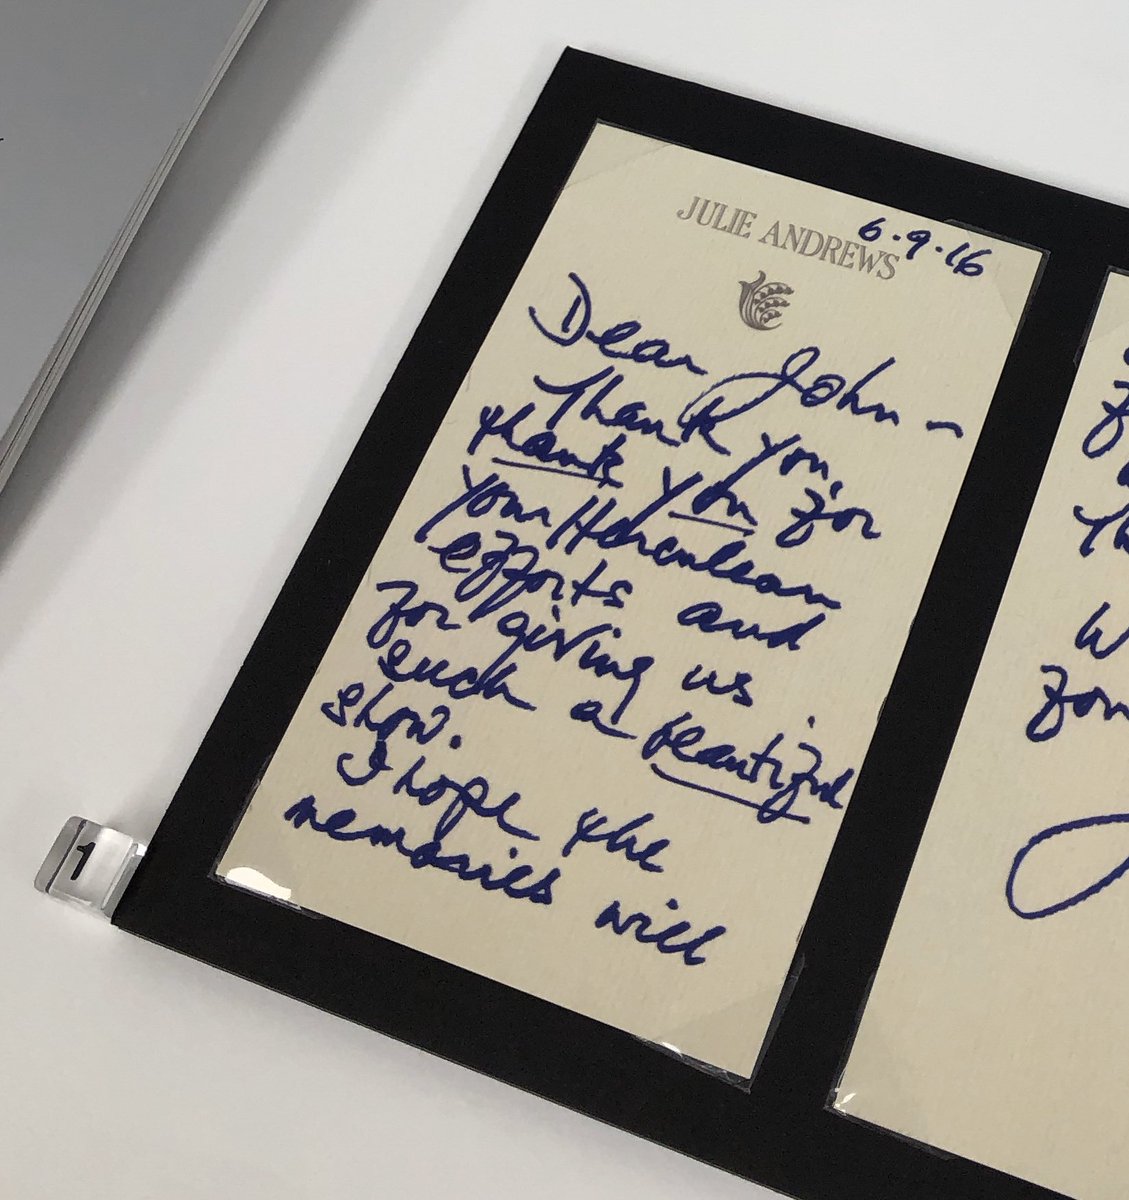 JULIE ANDREWS
6.9.16
Dear John –
Thank you,
thank you for
your Herculean
efforts and
for giving us
such a beautiful
show.
I hope the
memories will
1